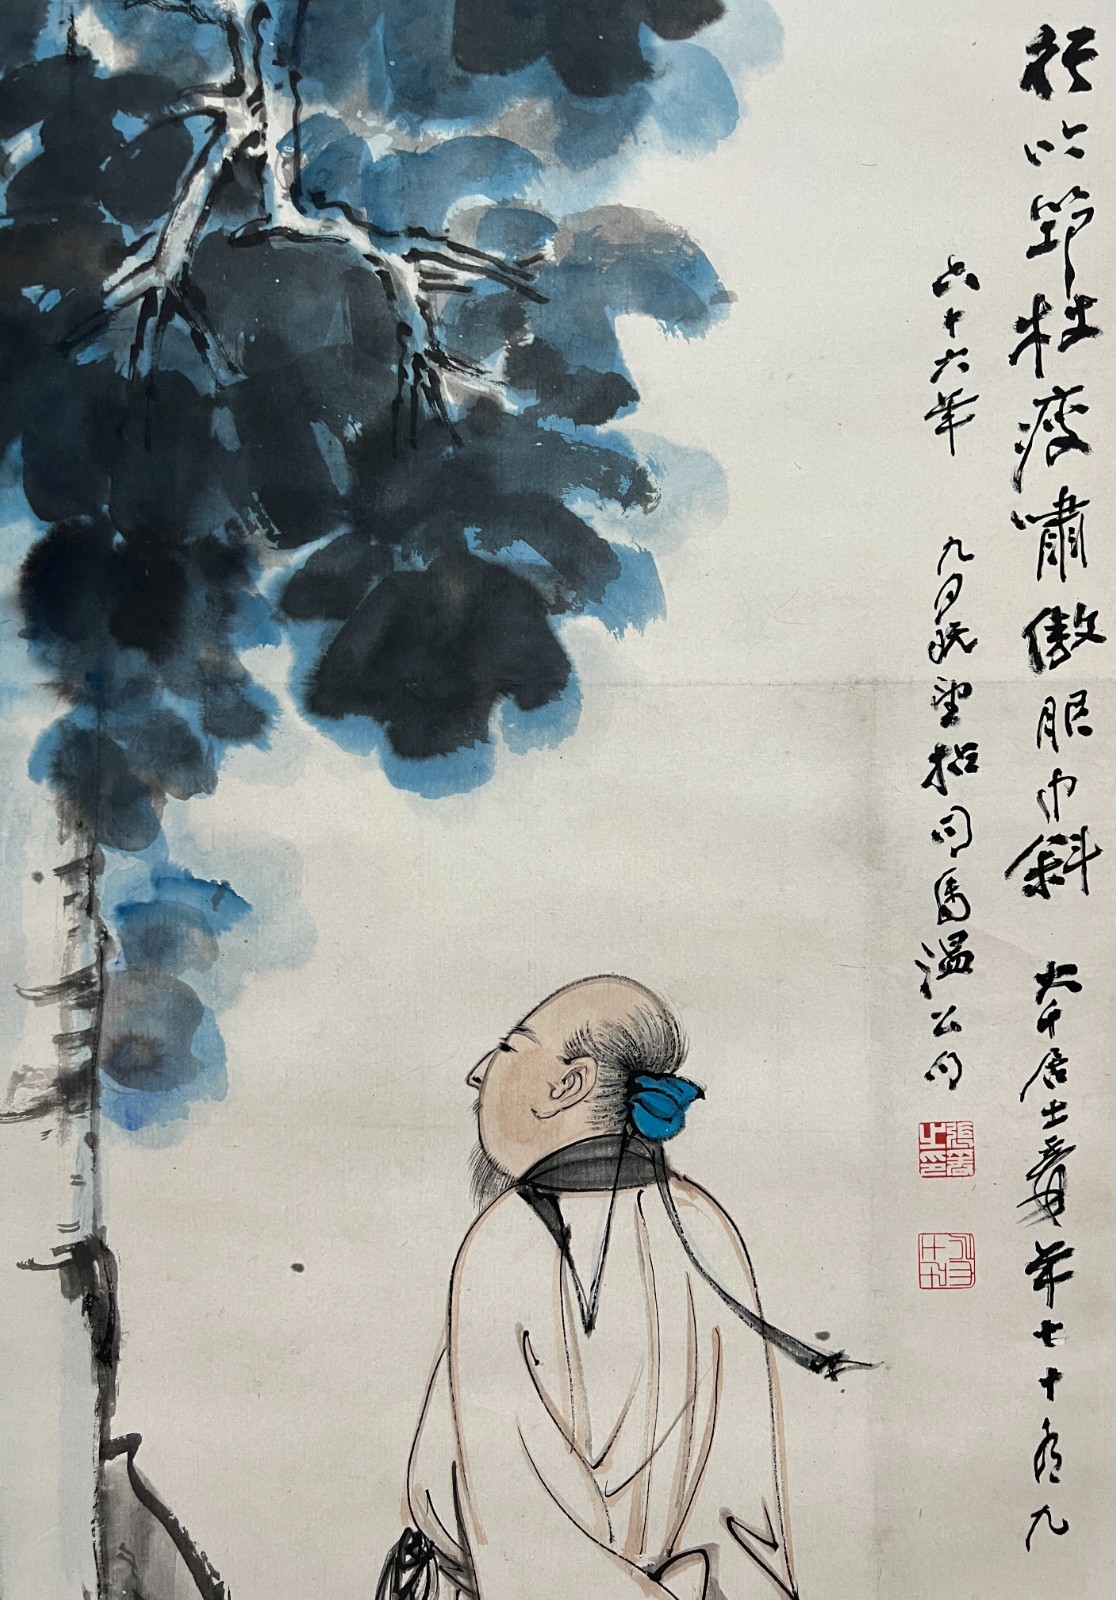 行吟筇杖瘦嘯傲服巾斜 大千居士爰年七十有九
六十六年 九月既望拈司馬温公句
張爰之印